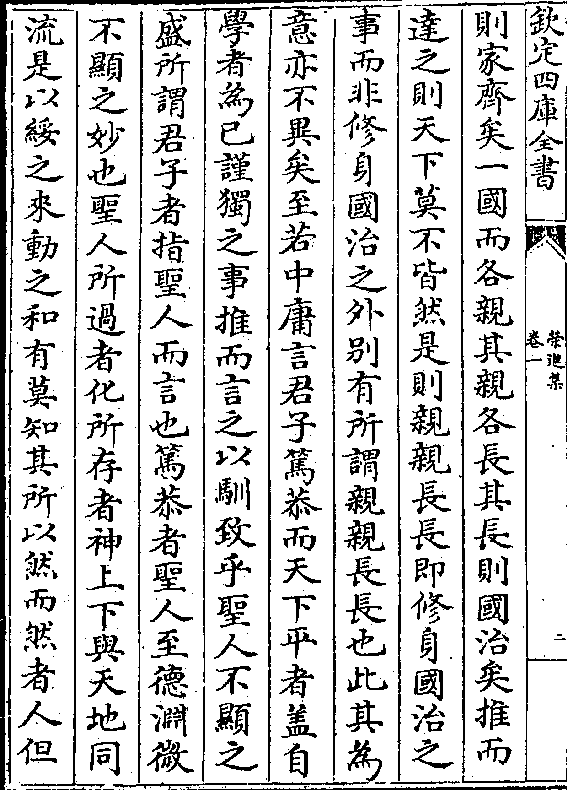 欽定四庫全書
榮進集
卷一
二
則家齊矣一國而各親其親各長其長則國治矣推而
達之則天下莫不皆然是則親親長長即修身國治之
事而非修身國治之外别有所謂親親長長也此其為
意亦不異矣至若中庸言君子篤恭而天下平者盖自
學者為已謹獨之事推而言之以馴致乎聖人不顯之
盛所謂君子者指聖人而言也篤恭者聖人至德淵微
不顯之妙也聖人所過者化所存者神上下與天地同
流是以綏之來動之和有莫知其所以然而然者人但